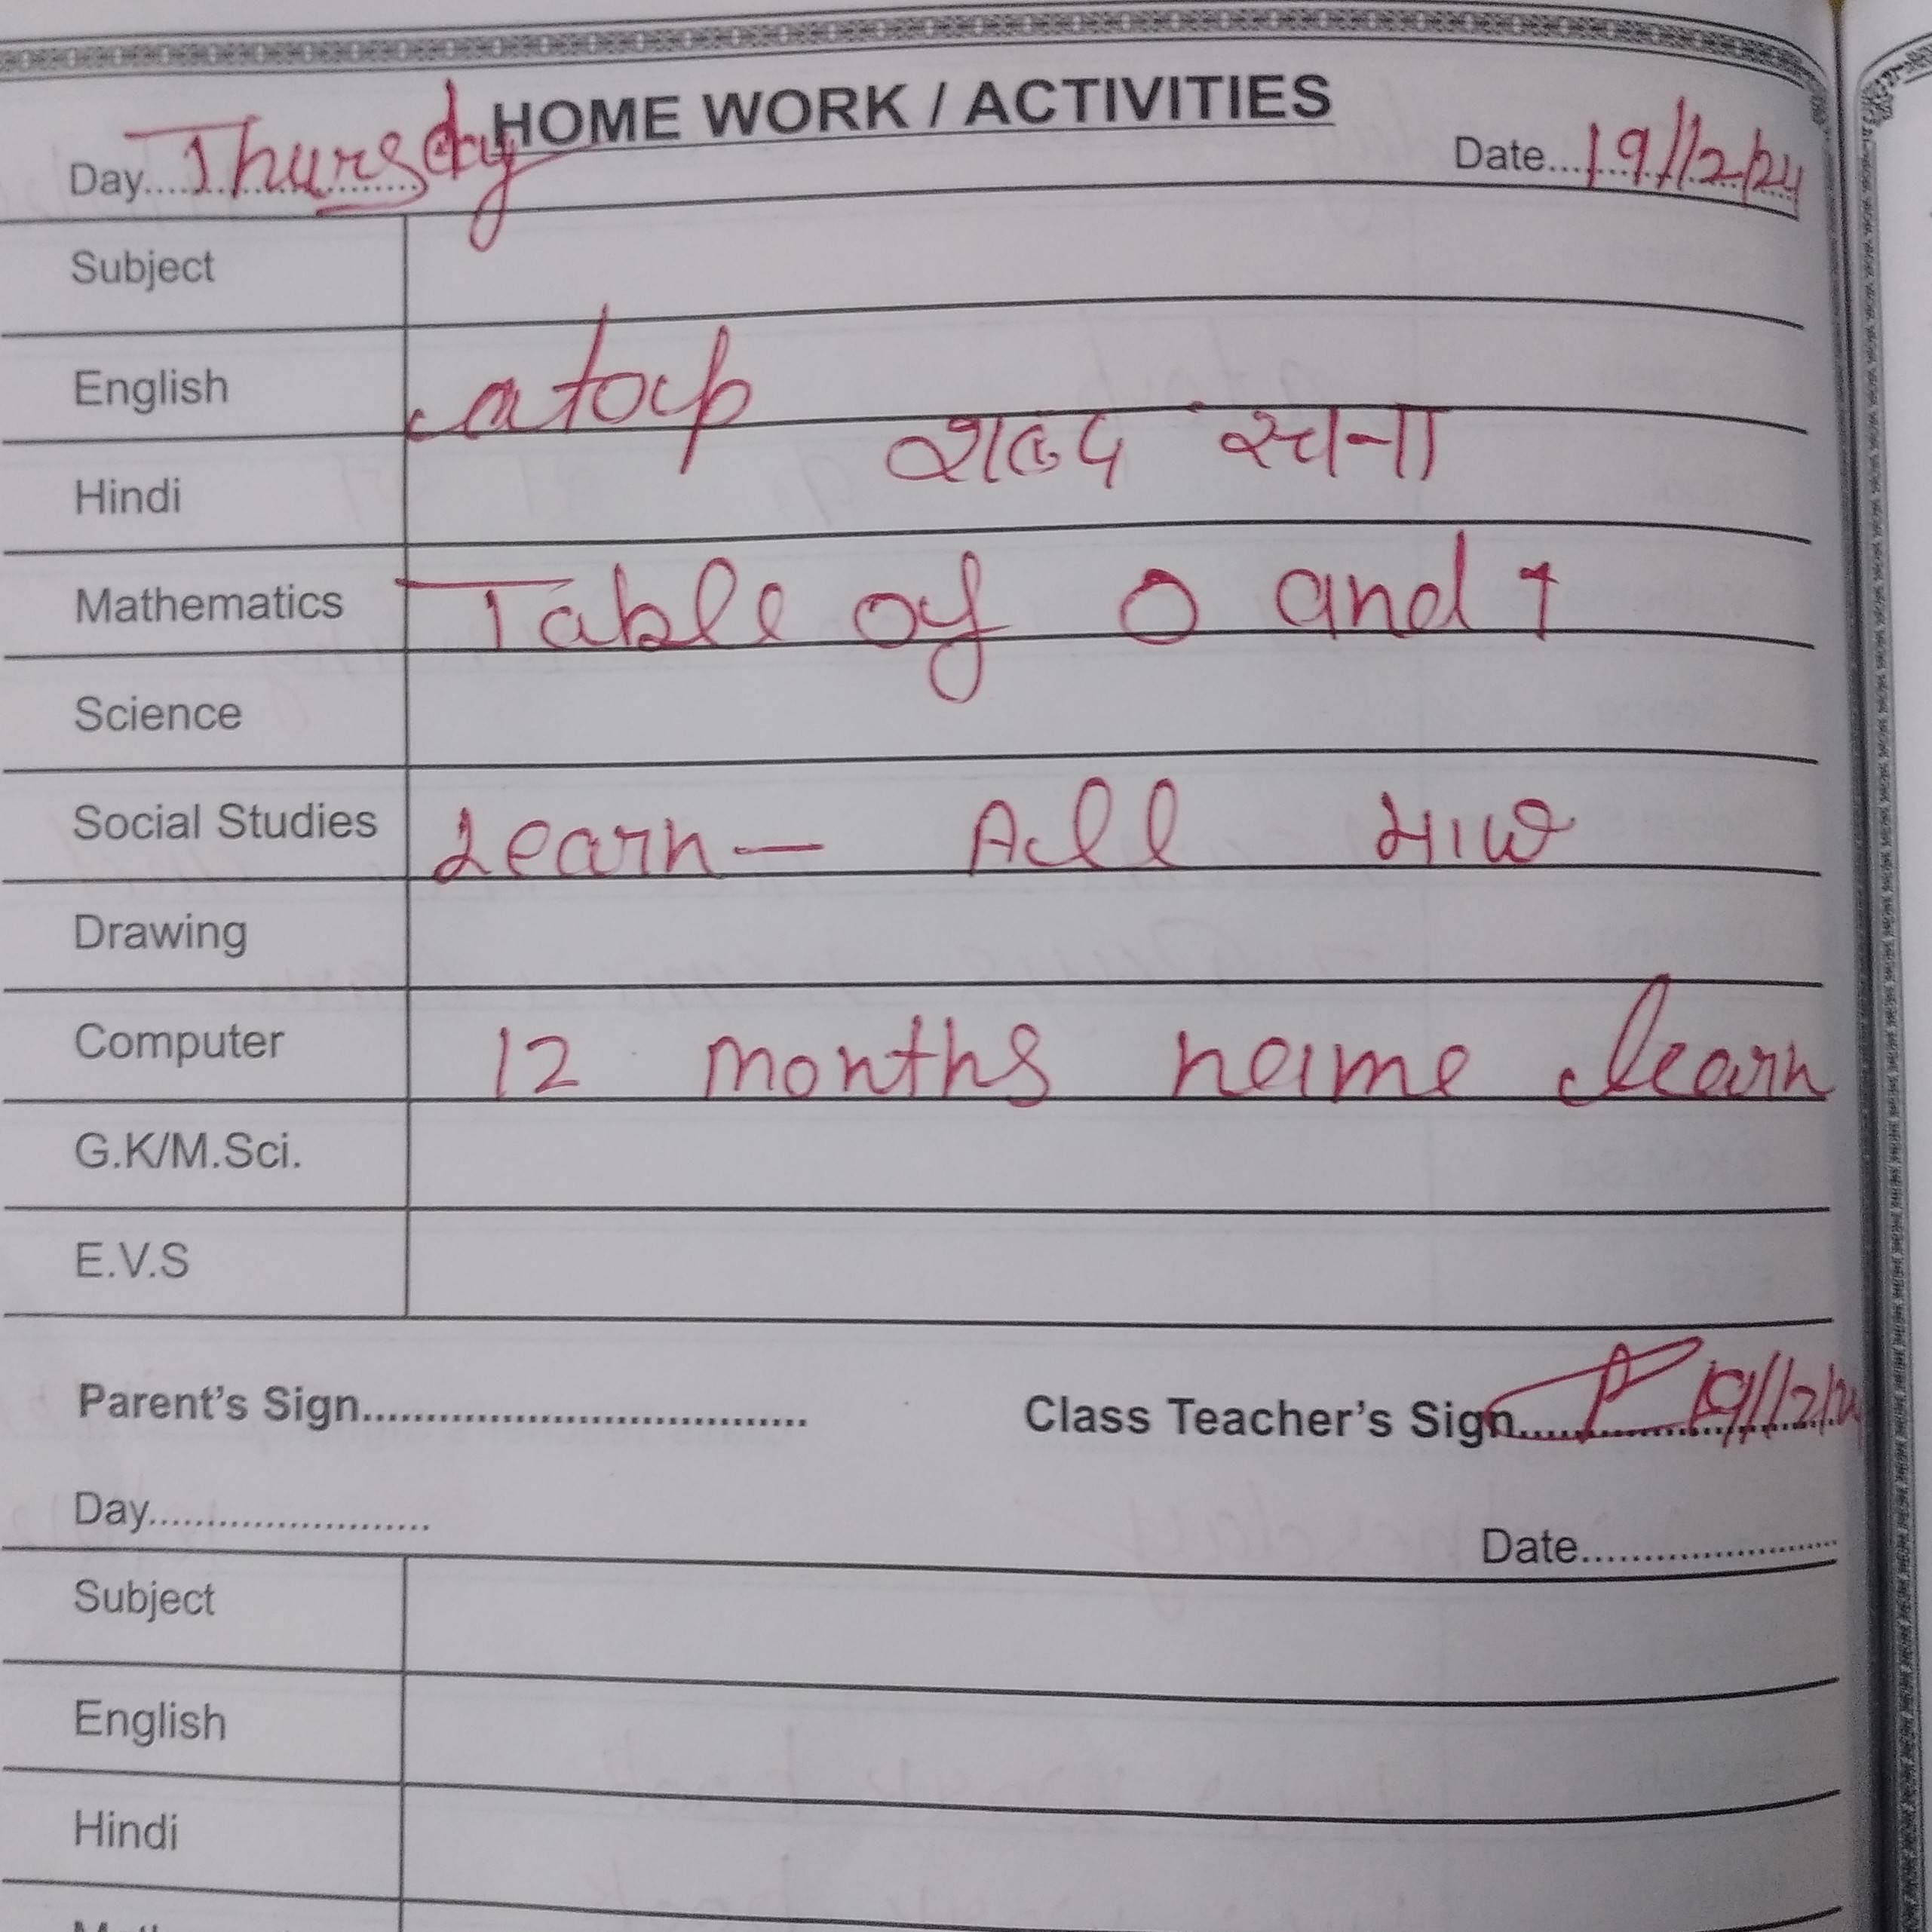 HOME WORK / ACTIVITIES
Day....Thursday Date...19/12/24
Subject
English a to p
Hindi शब्द रचना
Mathematics Table of 0 and 1
Science
Social Studies Learn — All
Drawing
Computer 12 months name learn
G.K/M.Sci.
E.V.S
Parent's Sign................................... Class Teacher's Sign........19/12/24
Day....................... Date.......................
Subject
English
Hindi